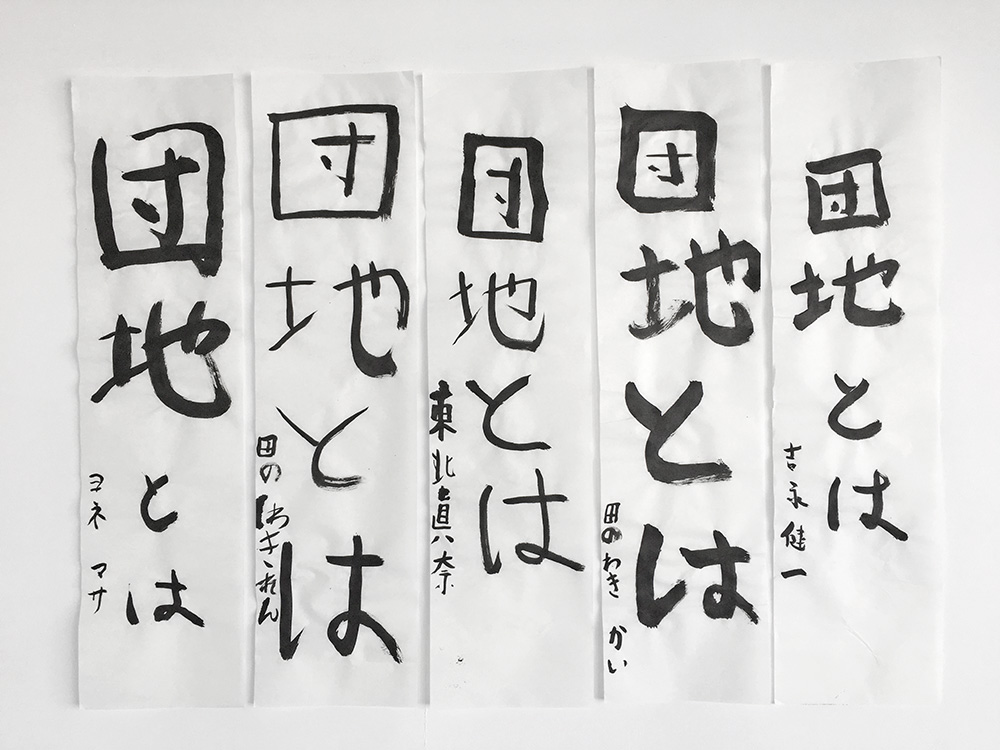 団地とは
吉永健一
団地とは
田のわき かい
団地とは
東北眞奈
団地とは
田のわきれん
団地とは
ヨネ マサ